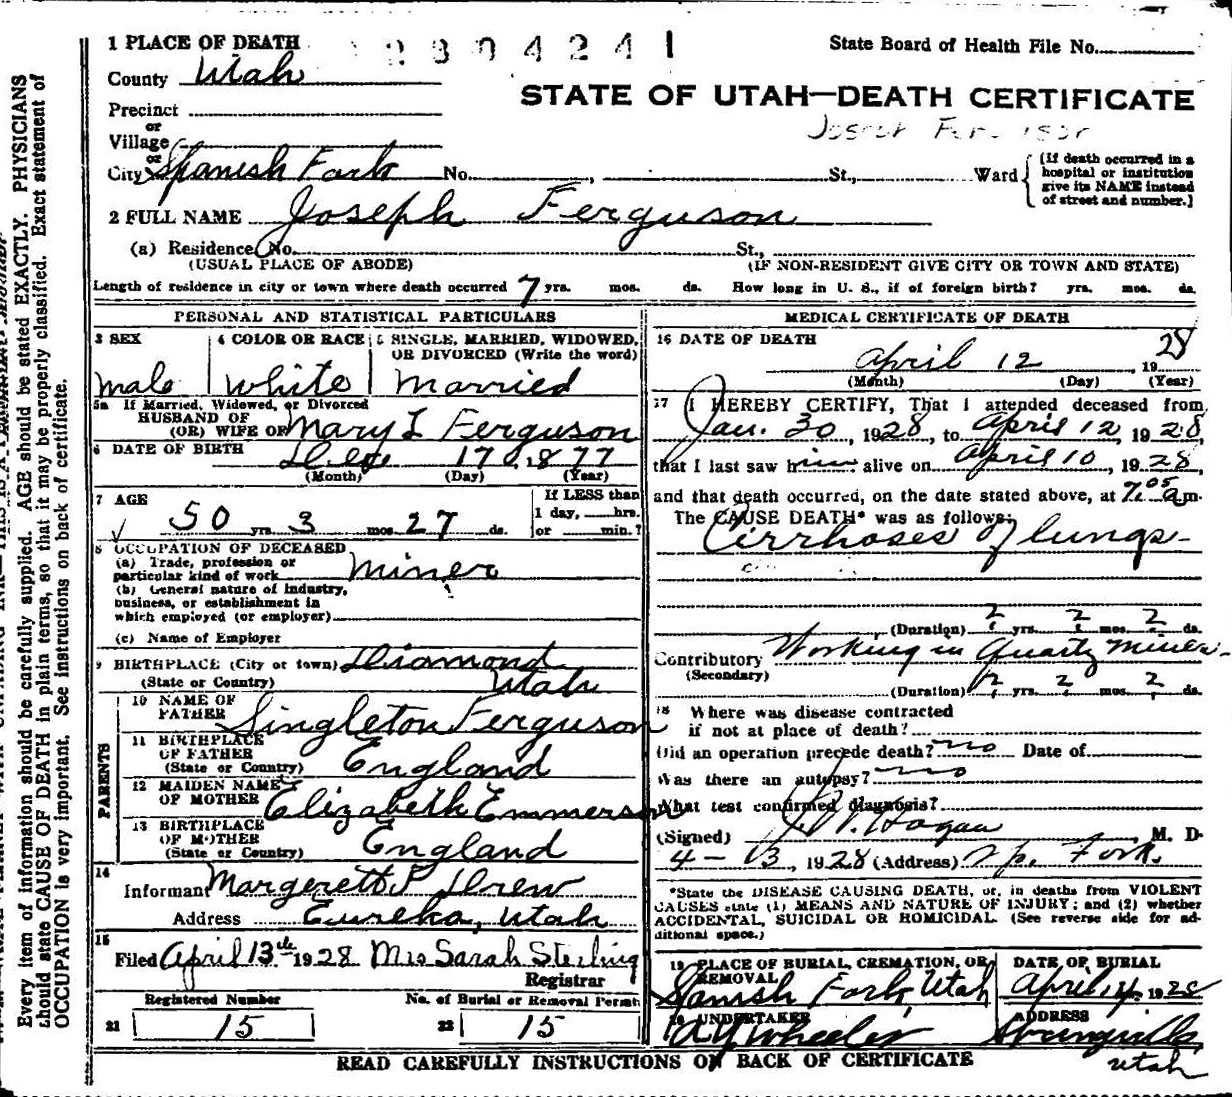 1 PLACE OF DEATH
2804241
State Board of Health File No.
County Utah
STATE OF UTAH—DEATH CERTIFICATE
Precinct
or
Village
or
City Spanish Fork No. , St., Ward
(If death occurred in a
hospital or institution
give its NAME instead
of street and number.)
2 FULL NAME Joseph Ferguson
(a) Residence, No. St.,
(USUAL PLACE OF ABODE) (IF NON-RESIDENT GIVE CITY OR TOWN AND STATE)
Length of residence in city or town where death occurred 7 yrs. mos. ds. How long in U. S., if of foreign birth? yrs. mos. ds.
PERSONAL AND STATISTICAL PARTICULARS
3 SEX
male
4 COLOR OR RACE
White
5 SINGLE, MARRIED, WIDOWED,
OR DIVORCED (Write the word)
Married
5a If Married, Widowed, or Divorced
HUSBAND OF
(OR) WIFE OF Mary L Ferguson
6 DATE OF BIRTH 17, 1877
(Month) (Day) (Year)
7 AGE
50 yrs. 3 mos. 27 ds.
If LESS than
1 day, hrs.
or min.?
8 OCCUPATION OF DECEASED
(a) Trade, profession or
particular kind of work Miner
(b) General nature of Industry,
business, or establishment in
which employed (or employer)
(c) Name of Employer
9 BIRTHPLACE (City or town) Diamond
(State or Country) Utah
PARENTS
10 NAME OF
FATHER Singleton Ferguson
11 BIRTHPLACE
OF FATHER
(State or Country) England
12 MAIDEN NAME
OF MOTHER Elizabeth Emmerson
13 BIRTHPLACE
OF MOTHER
(State or Country) England
14
Informant Margerett P Drew
Address Eureka, Utah
15
Filed April 13th 1928 Mrs Sarah Sterling
Registrar
Registered Number
21 15
No. of Burial or Removal Permit
22 15
MEDICAL CERTIFICATE OF DEATH
16 DATE OF DEATH
April 12, 1928
(Month) (Day) (Year)
17 I HEREBY CERTIFY, That I attended deceased from
Jan. 30, 1928, to April 12, 1928,
that I last saw him alive on April 10, 1928,
and that death occurred, on the date stated above, at 7.05 am.
The CAUSE DEATH* was as follows:
Cirrhoses of lungs
(Duration) ? yrs. ? mos. ? ds.
Contributory Working in Quartz Mines
(Secondary)
(Duration) ? yrs. ? mos. ? ds.
18 Where was disease contracted
if not at place of death?
Did an operation precede death? no Date of
Was there an autopsy? no
What test confirmed diagnosis?
(Signed) Hagan M. D.
4-13, 1928 (Address) Sp. Fork.
*State the DISEASE CAUSING DEATH, or, in deaths from VIOLENT
CAUSES state (1) MEANS AND NATURE OF INJURY; and (2) whether
ACCIDENTAL, SUICIDAL OR HOMICIDAL. (See reverse side for ad-
ditional space.)
19 PLACE OF BURIAL, CREMATION, OR
REMOVAL
Spanish Fork, Utah
DATE OF BURIAL
April 14, 1928
20 UNDERTAKER
A Y Wheeler
ADDRESS
Springville,
Utah
READ CAREFULLY INSTRUCTIONS ON BACK OF CERTIFICATE
Every item of information should be carefully supplied. AGE should be stated EXACTLY. PHYSICIANS
should state CAUSE OF DEATH in plain terms, so that it may be properly classified. Exact statement of
OCCUPATION is very important. See instructions on back of certificate.